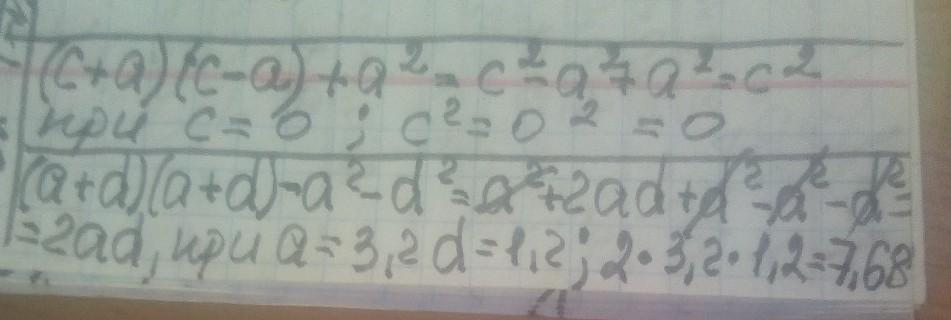 (c+a)(c-a)+a²=c²-a²+a²=c²
при c=0; c²=0²=0
(a+d)(a+d)-a²-d²=a²+2ad+d²-a²-d²=
=2ad, при a=3,2 d=1,2; 2·3,2·1,2=7,68